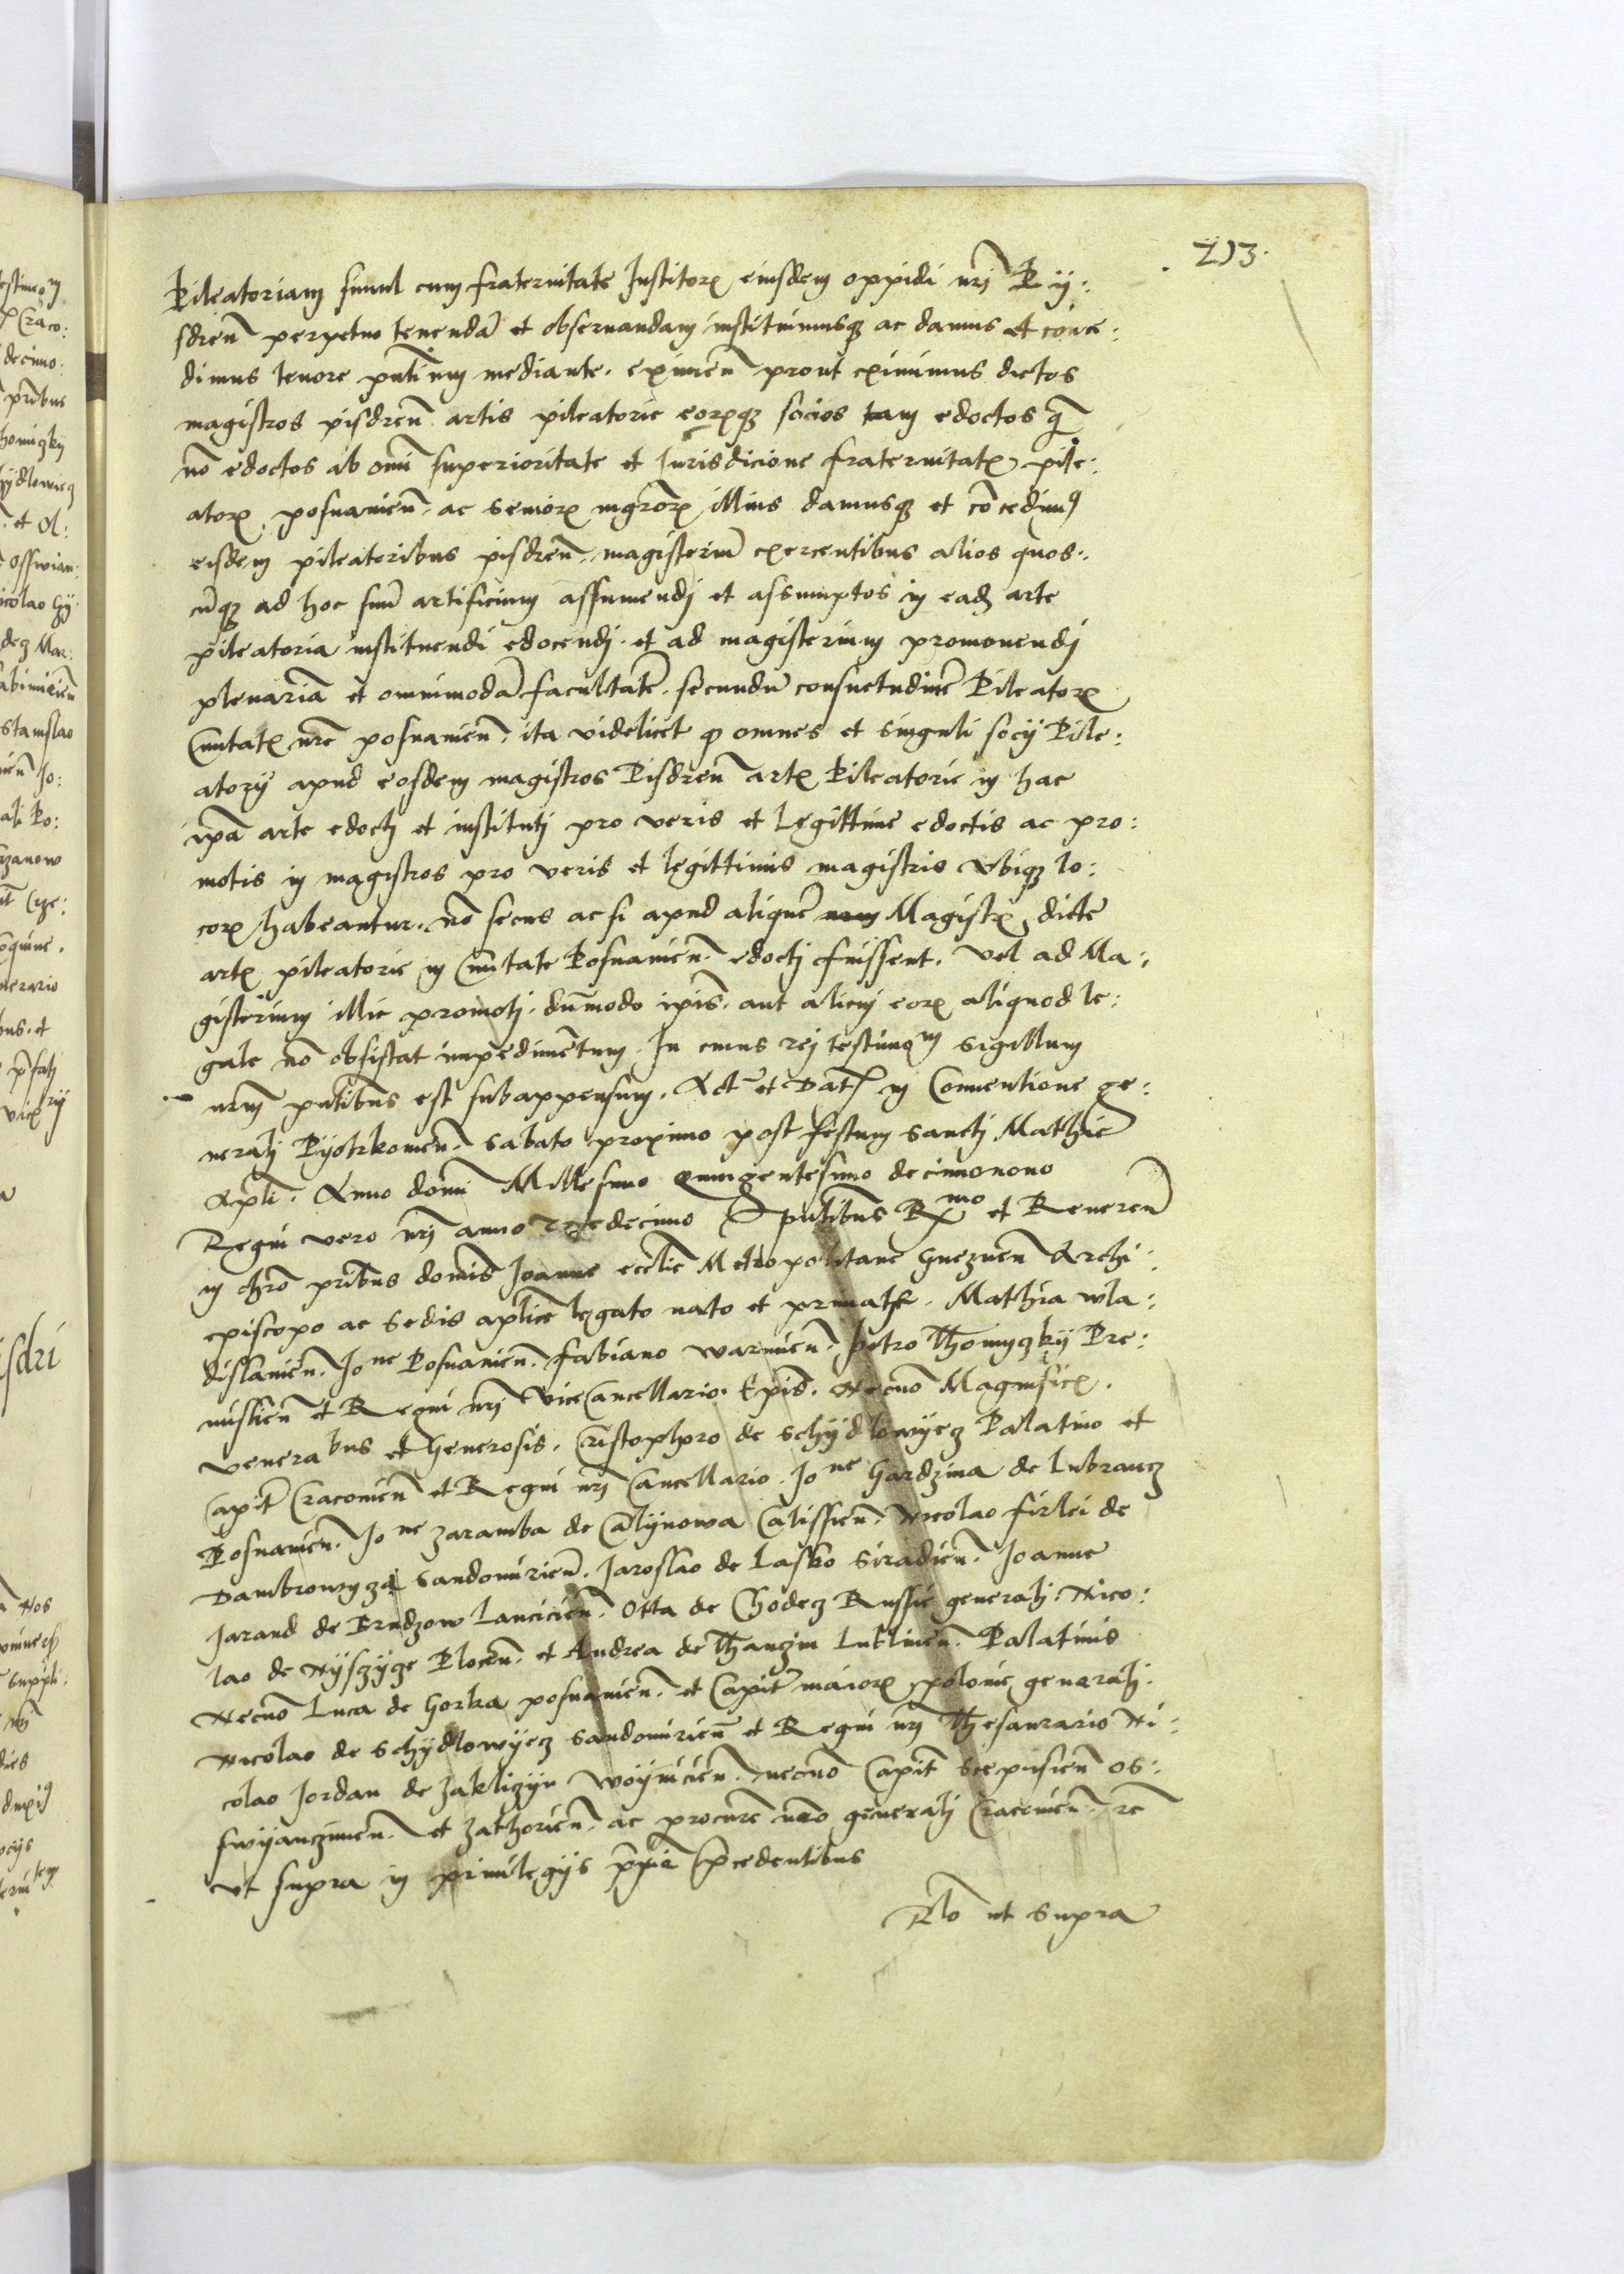 213.
Pileatoriam simul cum fraternitate Institorꝝ eiusdem oppidi nrj Py:
sdrien̄ perpetuo tenendā et obseruandam instituimusqꝫ ac damus et conce:
dimus tenore pn̄tium mediante. eximen̄ prout eximimus dictos
magistros pisdren̄ artis pileatorie eorꝝqꝫ socios tam edoctos q̄
nō edoctos ab omī superioritate et Iurisdicione fraternitatꝭ pile:
atorꝝ posnanien̄. ac seniorꝝ mgrōrꝝ illius damusqꝫ et cōcedimꝰ
eisdem pileatoribus pisdren̄. magisteriū exercentibus alios quos:
cūqꝫ ad hoc suū artificium assumendj et assumptos in eadꝫ arte
pileatoria instituendi edocendj. et ad magisterium promouendj
plenariā et omnimodā facultatē. secundū consuetudinē Pileatorꝝ
Ciuitatꝭ nrē posnanien̄. ita videlicet ꝙ omnes et singuli socij Pile:
atorij apud eosdem magistros Pisdren̄ artꝭ Pileatorie in hac
ipā arte edoctj et institutj pro veris et Legittime edoctis ac pro:
motis in magistros pro veris et legittimis magistris vbiqꝫ lo:
corꝝ habeantur. nō secus ac si apud aliquē Magistrꝝ dicte
artꝭ pileatorie in Ciuitate Posnanien̄. edoctj fuissent. vel ad Ma:
gisterium illic promotj. dūmodo ipis̄. aut alicuj eorꝝ aliquod le:
gale nō obsistat impedimētum. In cuius rej testimoꝫ sigillum
nrūm pn̄tibus est subappensum. Actū et Datꝭ in Conuentione ge:
neralj Pyotrkouien̄. Sabato proximo post festum sanctj Mathie
Apli. Anno domī Millesimo quingentesimo decimonono
Regni vero nrj anno decimo pn̄tibus Rmo et Reueren̄
in chrō pribus domīs Joanne eccliē Metropolitane Gneznen̄ Archi:
episcopo ac Sedis aplice legato nato et primate. Mathia wla:
dislauien̄. Jo ne Posnanien̄. fabiano warmien̄. petro Thomyczky Pre:
mislien̄ et Regni nrj ViceCancellario. Epis̄. Necnō Magnificꝭ.
venerabus et Generosis. Cristophoro de Schydlowyecz Palatino et
Capit̄ Cracouien̄ et Regni nrj Cancellario. Jo ne Gardzina de Lubrancz
Posnanien̄. Jo ne zaramba de Calynowa Calissien̄. Nicolao firlei de
Dambrowycza Sandomirien̄. Jaroslao de Lasko Siradien̄. Joanne
Jarand de Brudzow Lancicien̄. Otta de Chodecz Russie generalj. Nico:
lao de Nysczycze Plocen̄. et Andrea de Thanczin Lublinen̄. Palatinis
Necnō Luca de Gorka posnanien̄. et Capit̄ maiorꝭ polonie generalj.
Nicolao de Schydlowyecz Sandomirien̄ et Regni nrj Thesaurario Ni:
colao Jordan de zakliczyn woynicien̄. necnō Capit̄ Scepusien̄ Os:
swyanczimen̄. et zathorien̄. ac procurē nrō generalj Cracouien̄.
vt supra in priuilegijs p̄cedentibus
Rlō ut supra